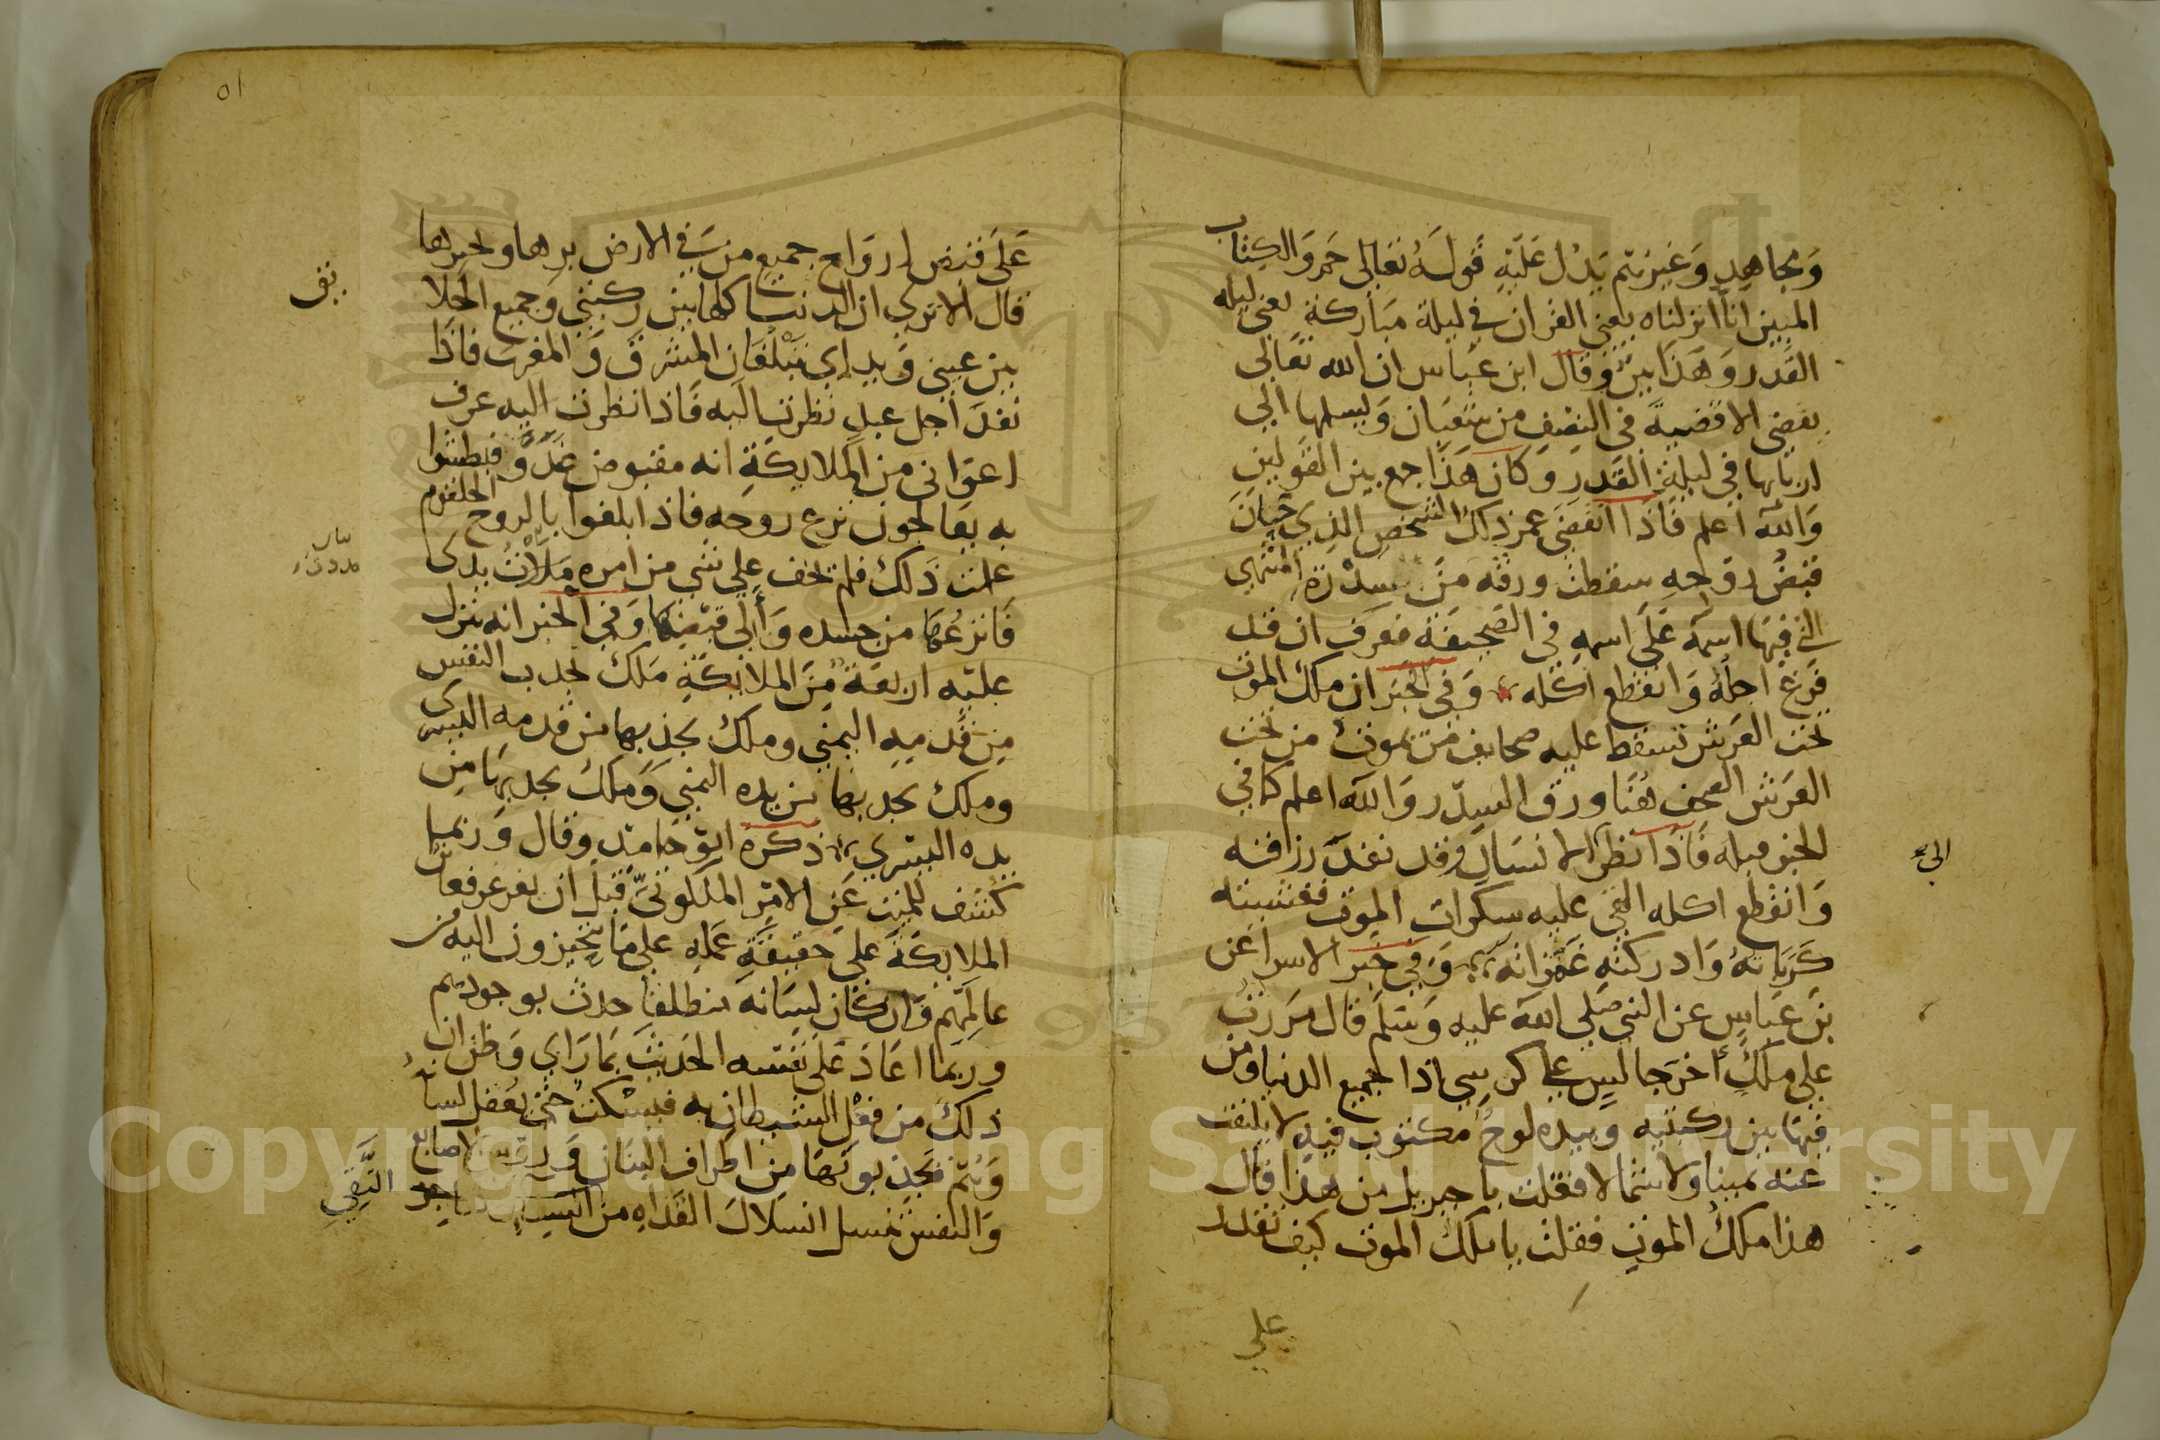 ومجاهد وغيرهم يدل عليه قوله تعالى حم والكتاب
المبين انا انزلناه يعني القران في ليلة مباركة يعني ليله
القدر وهذا بين وقال ابن عباس ان الله تعالى
يقضي الاقضية في النصف من شعبان ويسلمها الى
اربابها في ليلة القدر وكان هذا جمع بين القولين
والله اعلم فاذا انقضى عمر ذلك الشخص الذي حان
قبض روحه سقطت ورقه من سدرة المنتهي
التي فيها اسمه على اسمه في الصحيفة فعرف ان قد
فرغ اجله وانقطع اكله وفي الخبر ان ملك الموت
تحت العرش تسقط عليه صحايف من يموت من تحت
العرش الصحف هنا ورق السدر والله اعلم كما في
الخبر قبله فاذا نظر الانسان قد نفد رزقه
وانقطع اكله القي عليه سكرات الموت فغشيته
كرباته وادركته غمراته وفي خبر الاسرا عن
بن عباس عن النبي صلى الله عليه وسلم قال مررت
على ملك اخر جالس على كرسي اذا جميع الدنيا ومن
فيها بين ركبتيه وبيده لوح مكتوب فيه لا يلتفت
عنه يمينا ولا شمالا فقلت يا جبريل من هذا قال
هذا ملك الموت فقلت يا ملك الموت كيف تقدر
على
الى
٥١
على قبض ارواح جميع من في الارض برها وبحرها
قال الا ترى ان الدنيا كلها بين ركبتي وجميع الخلا
يق
بين عيني ويداي يبلغان المشرق والمغرب فاذا
نفد اجل عبد نظرت اليه فاذا نظرت اليه عرف
اعواني من الملايكة انه مقبوض غدوا فبطشوا
به يعالجون نزع روحه فاذا بلغوا بالروح الحلقوم
علمت ذلك فلم يخف علي شي من امره مددت يدي
فانزعها من جسده وألي قبضها وفي الخبر انه ينزل
عليه اربعة من الملايكة ملك يجذب النفس
من قدمه اليمني وملك يجذبها من قدمه اليسرى
وملك يجذبها من يده اليمني وملك يجذبها من
يده اليسري ذكره ابو حامد وقال وربما
كشف للميت عن الامر الملكوتي قبل ان يغرغر فعاين
الملايكة على حقيقة عمله على ما يتحيزون اليه من
عالمهم وان كان لسانه منطلقا حدث بوجودهم
وربما اعاد على نفسه الحديث بما راى وظن ان
ذلك من فعل الشيطان به فيسكت حتى يعقل لسانه
وهم يجذبونها من اطراف البنان وروس الاصابع
والنفس تنسل انسلال القذاه من السقا